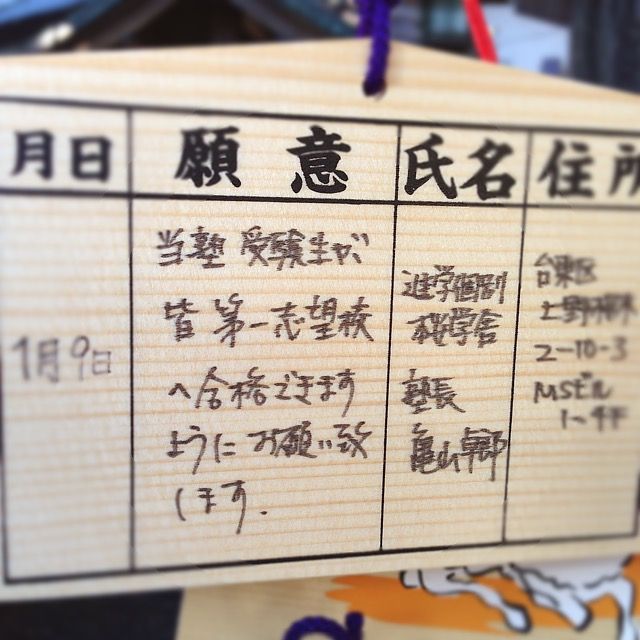 月日
願意
氏名
住所
1月9日
当塾 受験生が
皆 第一志望校
へ合格できます
ようにお願い致
します.
進学個別
桜学舎
塾長
亀山卓郎
台東区
上野桜木
2-10-3
MSビル
1~4F